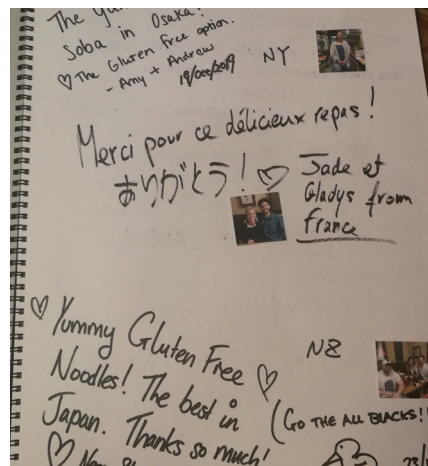 The Yum
Soba in Osaka!
♡ The Gluten Free option.
- Amy + Andrew
19/Oct/2019
NY
Merci pour ce délicieux repas !
ありがとう! ♡
Jade et
Gladys from
France
♡ Yummy Gluten Free
Noodles! The best in
Japan. Thanks so much!
♡
NZ
(GO THE ALL BLACKS!!